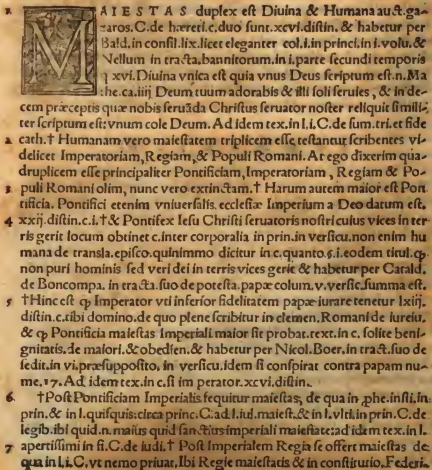 1. MAIESTAS duplex est Diuina & Humana au ct. ga-
zaros. C. de hæreti. c. duo sunt. xcvi. distin. & habetur per
Bald. in consil. lix. licet eleganter col. i. in princi. in i. volu. &
Nellum in tracta. bannitorum. in i. parte secundi temporis
q xvi. Diuina vnica est quia vnus Deus scriptum est. n. Ma
the. ca. iiij Deum tuum adorabis & illi soli seruies, & in de-
cem præceptis quæ nobis seruãda Christus seruator noster reliquit simili-
ter scriptum est: vnum cole Deum. Ad idem tex. in l. i. C. de sum. tri. et fide
2 cath. † Humanam vero maiestatem triplicem esse testantur scribentes vi-
delicet Imperatoriam, Regiam, & Populi Romani. At ego dixerim qua-
druplicem esse principaliter Pontificiam, Imperatoriam, Regiam & Po-
3 puli Romani olim, nunc vero extinctam. † Harum autem maior est Pon
tificia. Pontifici etenim vniuersalis. ecclesiæ Imperium a Deo datum est.
4 xxij. distin. c. i. † & Pontifex Iesu Christi seruatoris nostri cuius vices in ter-
ris gerit locum obtinet c. inter corporalia in prin. in versicu. non enim hu
mana de transla. episco. quinimmo dicitur in c. quanto. §. i. eodem titul. ꝙ
non puri hominis sed veri dei in terris vices gerit & habetur per Catald.
de Boncompa. in tracta. suo de potesta. papæ colum. v. versic. summa est.
5 † Hinc est ꝙ Imperator vti inferior fidelitatem papæ iurare tenetur lxiij.
distin. c. tibi domino. de quo plene scribitur in clemen. Romani de iureiu.
& ꝙ Pontificia maiestas Imperiali maior sit probat. text. in c. solite beni-
gnitatis. de maiori. & obedien. & habetur per Nicol. Boer. in tract. suo de
sedit. in vi. præsupposito. in versicu. idem si conspirat contra papam nu-
me. 17. Ad idem tex. in c. si im perator. xcvi. distin.
6. † Post Pontificiam Imperialis sequitur maiestas, de qua in ꝓhe. insti. in
prin. & in l. quisquis. circa princ. C. ad l. iul. maiest. & in l. vlti. in prin. C. de
legib. ibi quid. n. maius quid sanctius imperiali maiestate: ad idem tex. in l.
7 apertissimi in fi. C. de iudi. † Post Imperialem Regia se offert maiestas de
qua in l. i. C. vt nemo priuat. Ibi Regie maiestatis & in constitutio. Federi.